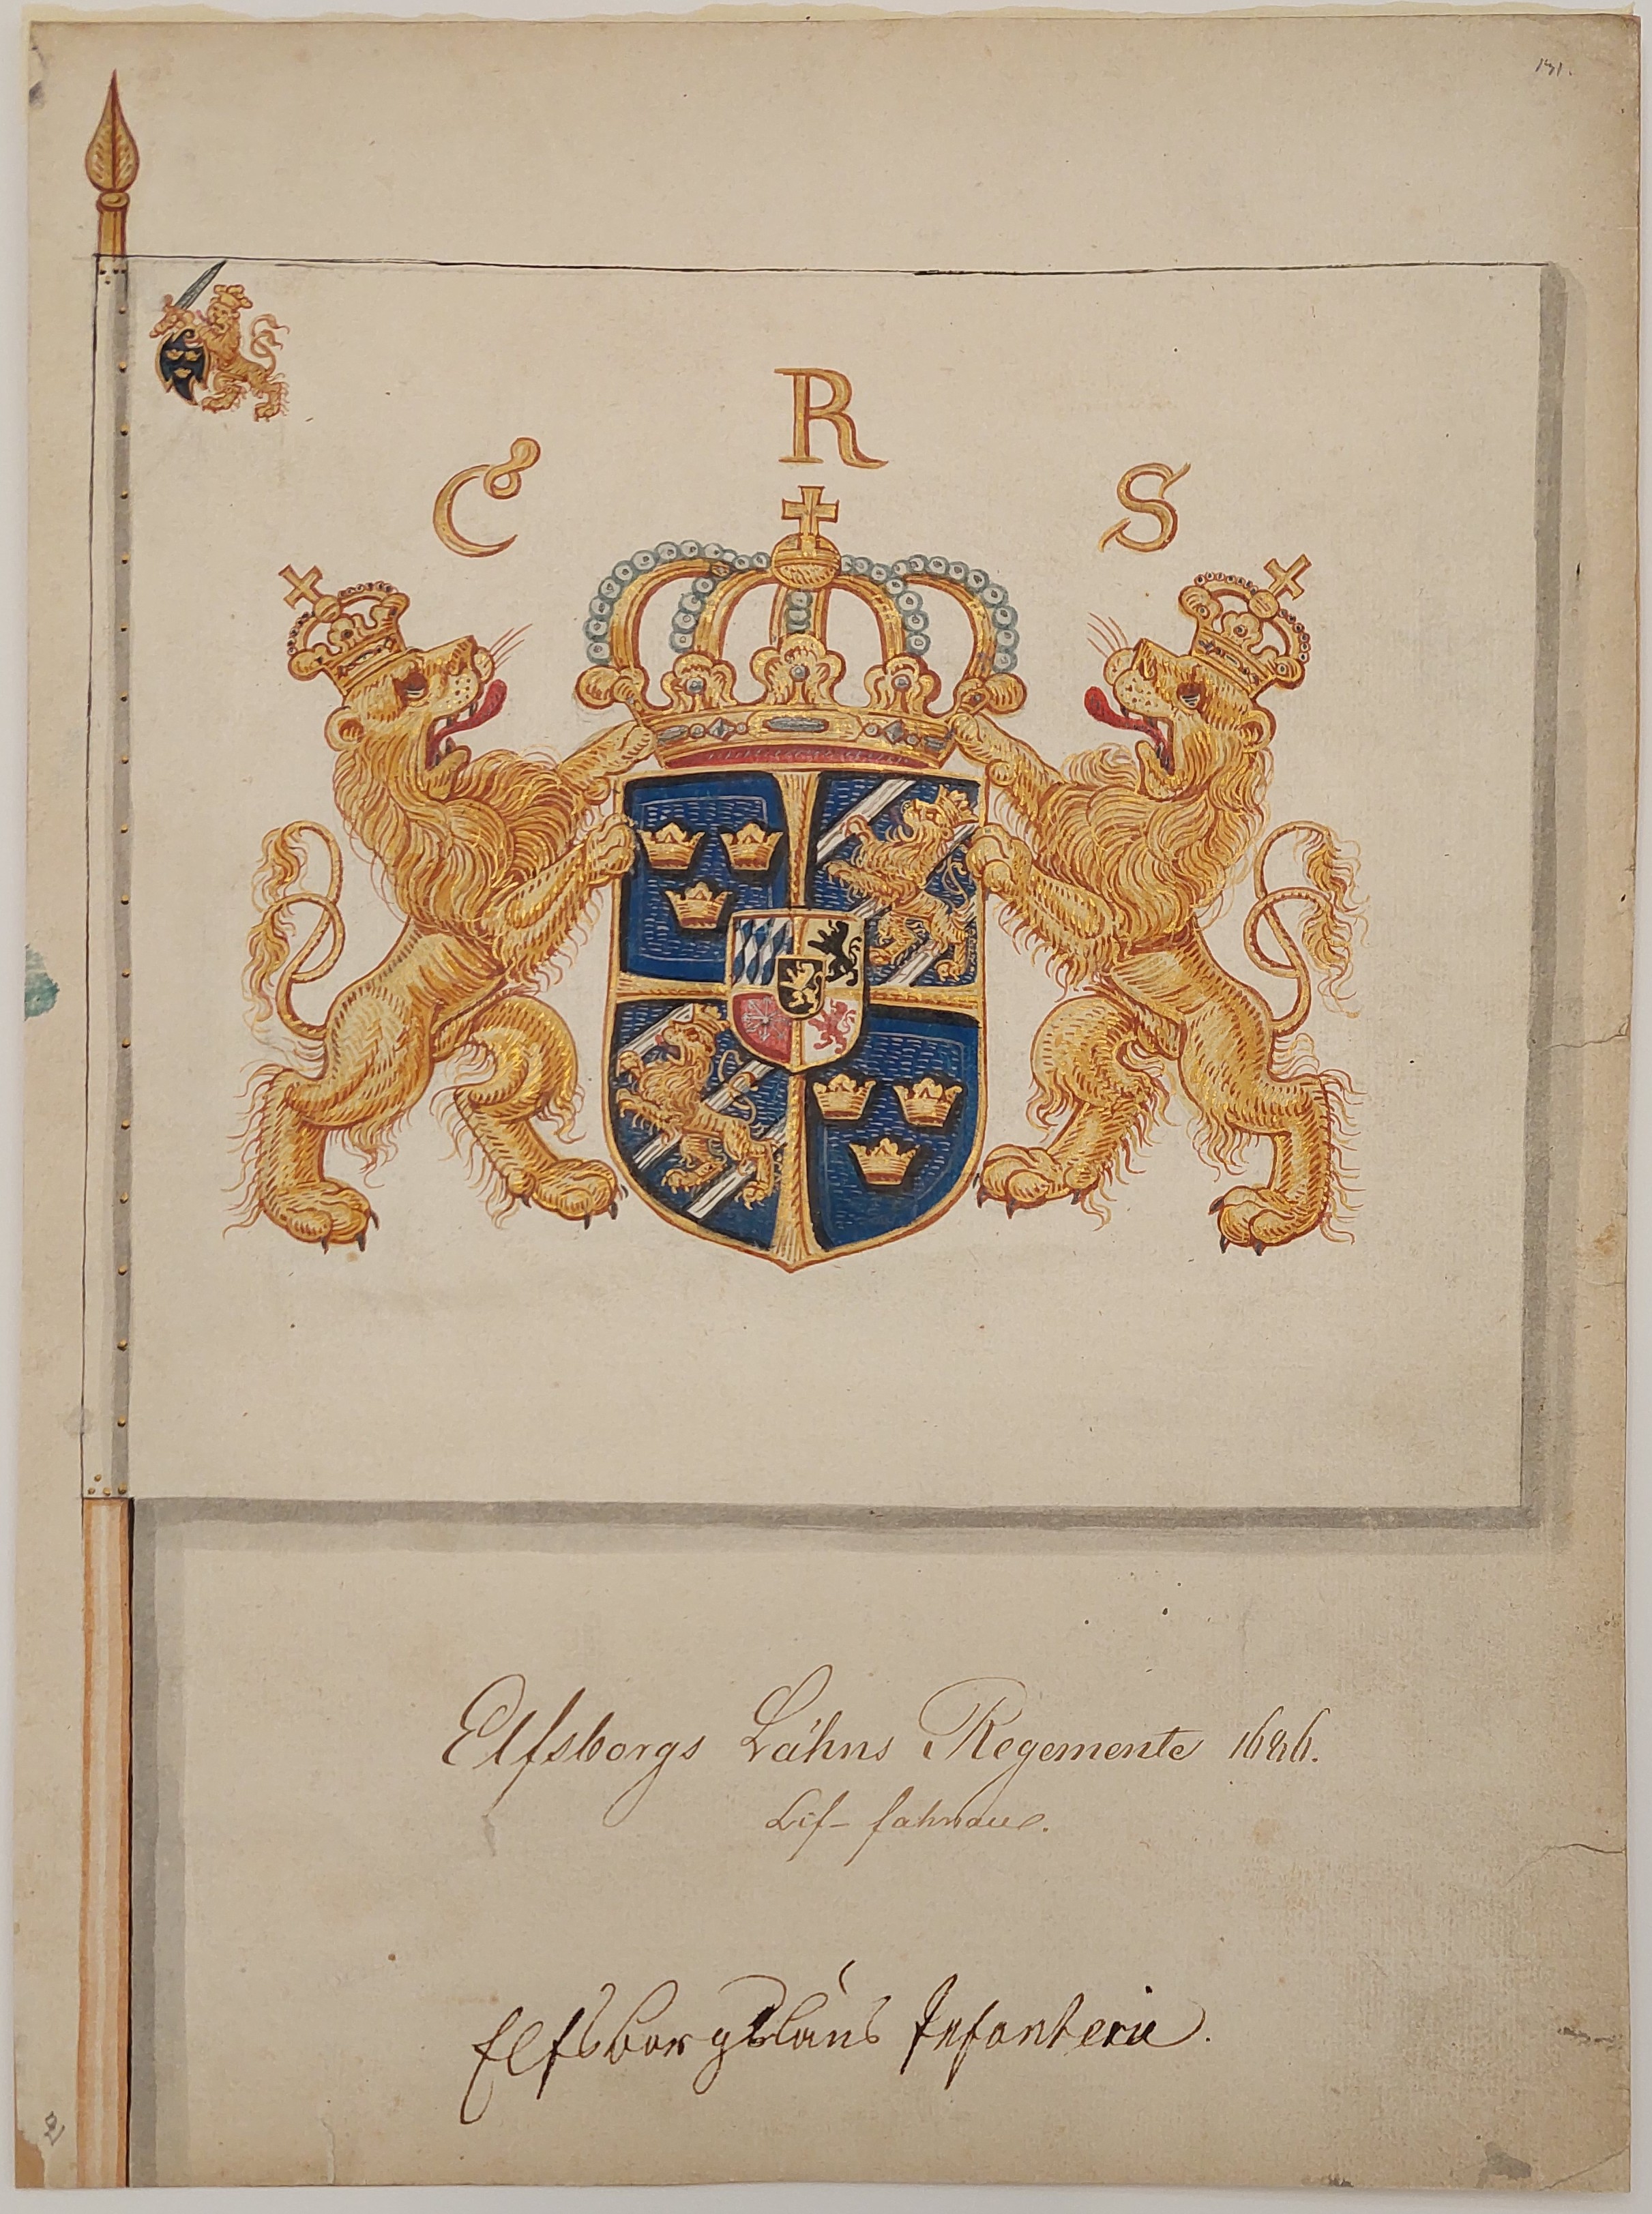 131.
C R S
Elfsborgs Lähns Regemente 1686.
Lif- fahnan.
Elfsborgsläns Infanterie.
2